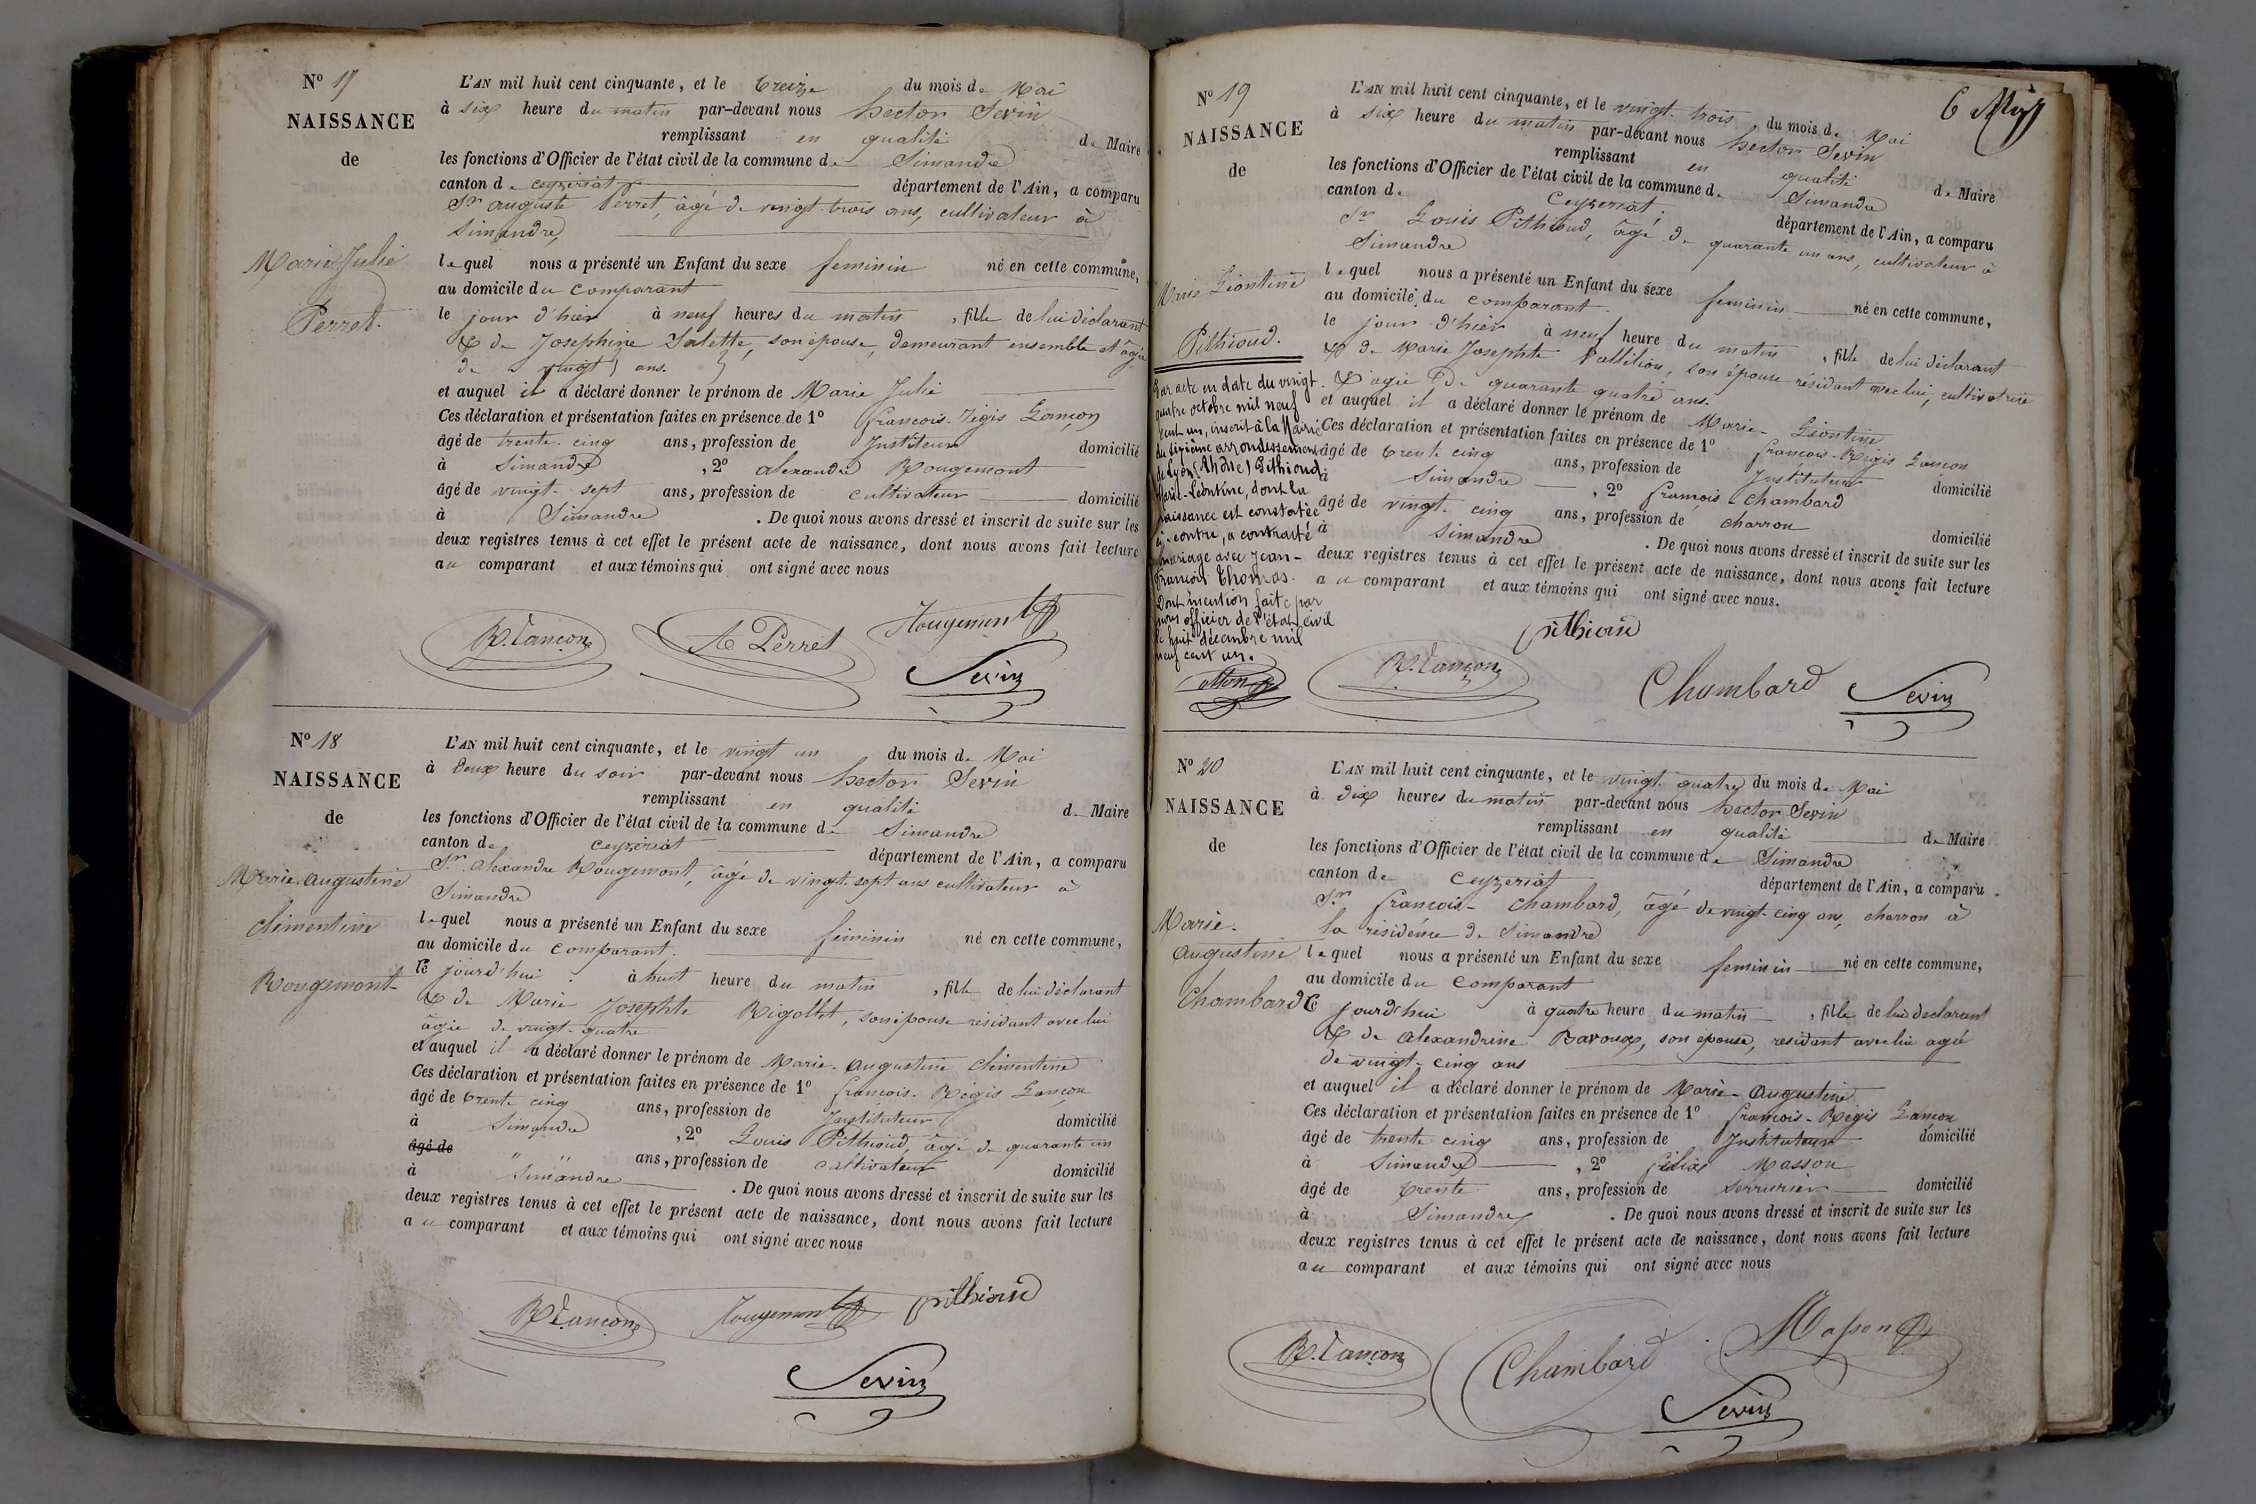 Nº 17
NAISSANCE
de
Marie Julie
Perret.
L'AN mil huit cent cinquante, et le treize du mois de Mai
à six heure du matin par-devant nous hector Sevin
remplissant en qualité de Maire
les fonctions d'Officier de l'état civil de la commune de Simandre
canton de ceyzeriat département de l'Ain, a comparu
Sr auguste Perret, âgé de vingt-trois ans, cultivateur à
Simandre,
lequel nous a présenté un Enfant du sexe feminin né en cette commune,
au domicile du comparant
le jour d'hier à neuf heures du matin, fille de lui déclarant
& de Josephine Salette, son épouse, demeurant ensemble et âgée
de vingt ans.
et auquel il a déclaré donner le prénom de Marie Julie
Ces déclaration et présentation faites en présence de 1º francois-Régis Lançon
âgé de trente-cinq ans, profession de Instituteur domicilié
à Simandre, 2º alexandre Rougemont
âgé de vingt-sept ans, profession de cultivateur domicilié
à Simandre. De quoi nous avons dressé et inscrit de suite sur les
deux registres tenus à cet effet le présent acte de naissance, dont nous avons fait lecture
au comparant et aux témoins qui ont signé avec nous
R. Lançon A Perret Rougemont
Sevin
Nº 18
NAISSANCE
de
Marie-augustine
clémentine
Rougemont
L'AN mil huit cent cinquante, et le vingt un du mois de Mai
à deux heure du soir par-devant nous hector Sevin
remplissant en qualité de Maire
les fonctions d'Officier de l'état civil de la commune de Simandre
canton de ceyzeriat département de l'Ain, a comparu
Sr alexandre Rougemont, âgé de vingt-sept ans cultivateur à
Simandre
lequel nous a présenté un Enfant du sexe féminin né en cette commune,
au domicile du comparant.
le jourd'hui à huit heure du matin, fille de lui déclarant
& de Marie Josephte Rigollet, son épouse résidant avec lui
âgée de vingt-quatre
et auquel il a déclaré donner le prénom de Marie-augustine clémentine
Ces déclaration et présentation faites en présence de 1º francois-Régis Lançon
âgé de trente cinq ans, profession de Instituteur domicilié
à Simandre, 2º Louis Pithioud, âgé de quarante un
âgé de ans, profession de cultivateur domicilié
à Simandre. De quoi nous avons dressé et inscrit de suite sur les
deux registres tenus à cet effet le présent acte de naissance, dont nous avons fait lecture
au comparant et aux témoins qui ont signé avec nous
R Lançon Rougemont pithioud
Sevin
6
Nº 19
NAISSANCE
de
Marie Léontine
Pithioud.
Par acte en date du vingt
quatre octobre mil neuf
cent un, inscrit à la Mairie
du sixième arrondissement
de Lyon (Rhône) Pithioud
Marie-Léontine, dont la
naissance est constatée
ci-contre, a contracté
mariage avec Jean-
François Thomas.
Dont mention faite par
nous officier de l'état civil
le huit décembre mil
neuf cent un.
L'AN mil huit cent cinquante, et le vingt-trois du mois de Mai
à six heure du matin par-devant nous hector Sevin
remplissant en qualité de Maire
les fonctions d'Officier de l'état civil de la commune de Simandre
canton de Ceyzeriat département de l'Ain, a comparu
Sr Louis Pithioud, âgé de quarante un ans, cultivateur à
Simandre
lequel nous a présenté un Enfant du sexe feminin né en cette commune,
au domicile du comparant.
le jour d'hier à neuf heure du matin, fille de lui déclarant
& de Marie Josephte, son épouse résidant avec lui, cultivatrice
& âgée de quarante quatre ans.
et auquel il a déclaré donner le prénom de Marie-Léontine
Ces déclaration et présentation faites en présence de 1º francois-Régis Lançon
âgé de trente cinq ans, profession de Instituteur domicilié
à Simandre, 2º françois chambard
âgé de vingt-cinq ans, profession de charron domicilié
à Simandre. De quoi nous avons dressé et inscrit de suite sur les
deux registres tenus à cet effet le présent acte de naissance, dont nous avons fait lecture
au comparant et aux témoins qui ont signé avec nous.
pithioud
R. Lançon Chambard Sevin
Nº 20
NAISSANCE
de
Marie-
augustine
Chambard
L'AN mil huit cent cinquante, et le vingt-quatre du mois de Mai
à dix heures du matin par-devant nous hector Sevin
remplissant en qualité de Maire
les fonctions d'Officier de l'état civil de la commune de Simandre
canton de ceyzeriat département de l'Ain, a comparu
Sr francois-chambard, âgé de vingt-cinq ans, charron à
la résidence de Simandre
lequel nous a présenté un Enfant du sexe feminin né en cette commune,
au domicile du comparant
Ce jourd'hui à quatre heure du matin, fille de lui déclarant
& de alexandrine Bavoux, son epouse, residant avec lui agée
de vingt-cinq ans
et auquel il a déclaré donner le prénom de Marie-augustine
Ces déclaration et présentation faites en présence de 1º francois-Régis Lançon
âgé de trente cinq ans, profession de Instituteur domicilié
à Simandre, 2º félix Masson
âgé de trente ans, profession de serrurier domicilié
à Simandre. De quoi nous avons dressé et inscrit de suite sur les
deux registres tenus à cet effet le présent acte de naissance, dont nous avons fait lecture
au comparant et aux témoins qui ont signé avec nous
R. Lançon Chambard Masson
Sevin